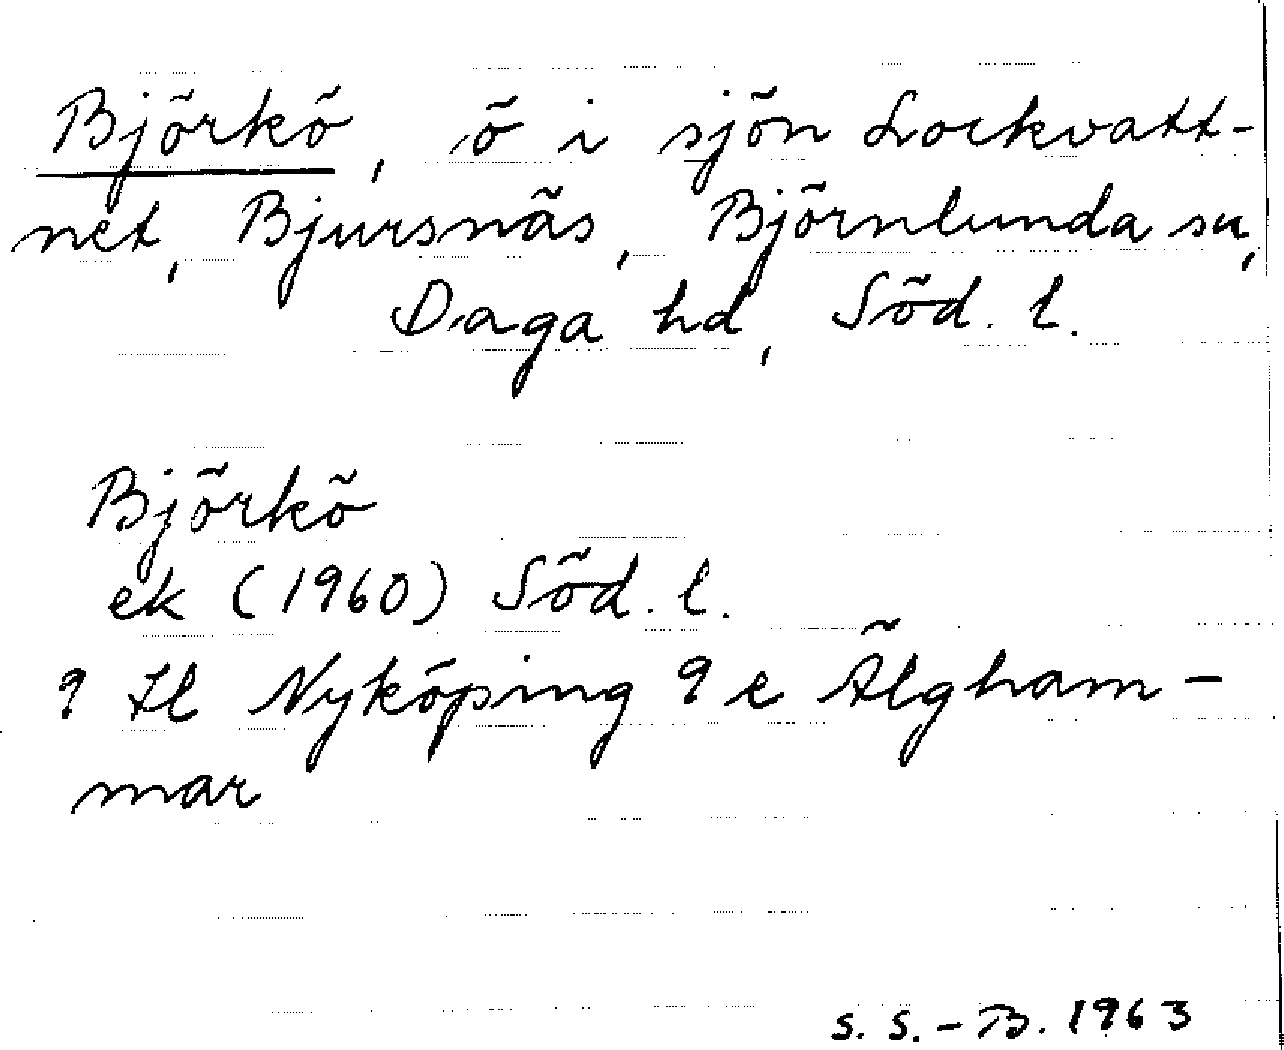 Björkö, ö i sjön Lockvatt-
net, Bjursnäs, Björnlunda sn,
Daga hd, Söd. l.
Björkö
ek (1960) Söd. l.
9 Il Nyköping 9 e Älgham-
mar
S. S. - B. 1963